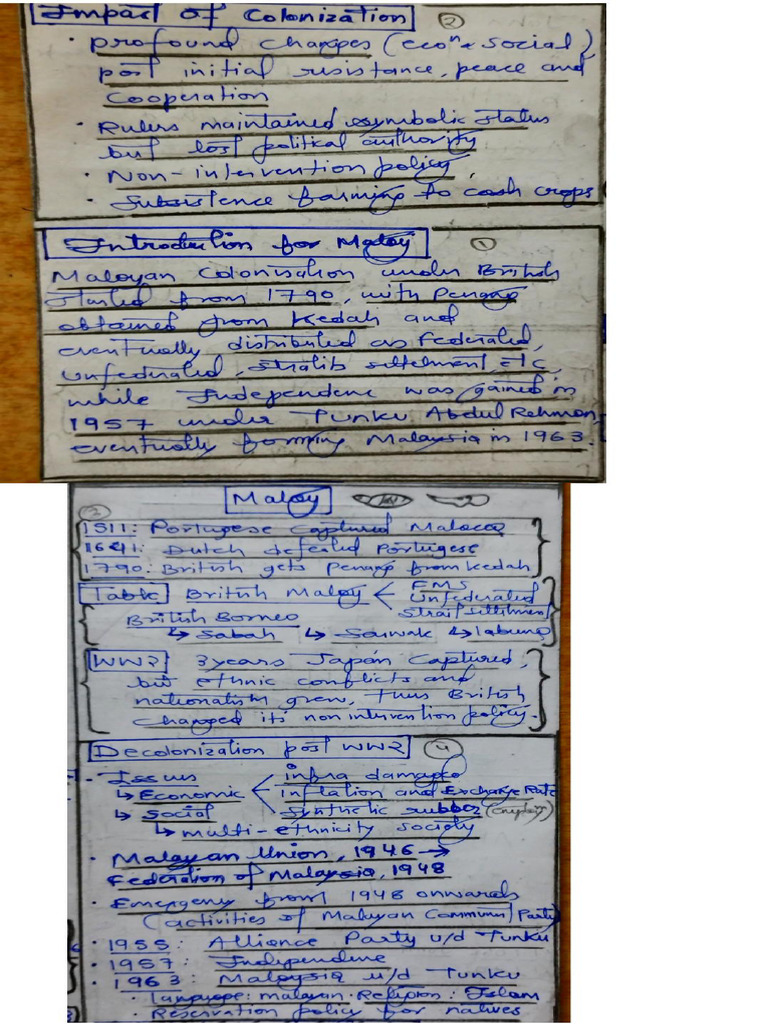 Impact of Colonization 2
• profound changes (econ & social)
post initial resistance, peace and
Cooperation
• Rulers maintained symbolic status
but lost political authority
• Non-intervention policy.
• Subsistence farming to cash crops
Introduction for Malay 1
Malayan Colonisation under British
started from 1790, with Penang
obtained from Kedah and
eventually distributed as Federated,
unfederated, straits settelment, etc,
while Independene was gained in
1957 under Tunku Abdul Rehman,
eventually forming Malaysia in 1963.
Malay
3
1511: Portugese Captured Malacca
1641: Dutch defeated Portugese
1790: British gets Penang from Kedah
Table British Malay < FMS
Unfederated
Strait settelment
British Borneo
↳ Sabah ↳ Sarwak ↳ labuna
WW2 3 years Japan Captured,
but ethnic conflicts and
nationalism grew, thus British
changed its non intervention policy.
Decolonization post WW2 4
- Issues
↳ Economic < infra damaged
inflation and Exchange Rate
↳ Social synthetic rubber
↳ multi-ethnicity society
• Malayan Union, 1946 →
Federation of Malaysia, 1948
• Emergency from 1948 onwards
(activities of Malayan Communist Party)
• 1955: Alliance Party u/d Tunku
• 1957: Independene
• 1963: Malaysia u/d Tunku
• language: malayan • Religion: Islam
• Reservation policy for natives